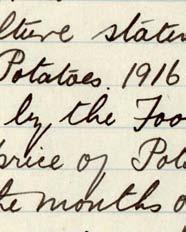 lture staten
Potatoes. 1916
by, the Foo
price of Pot
the months o